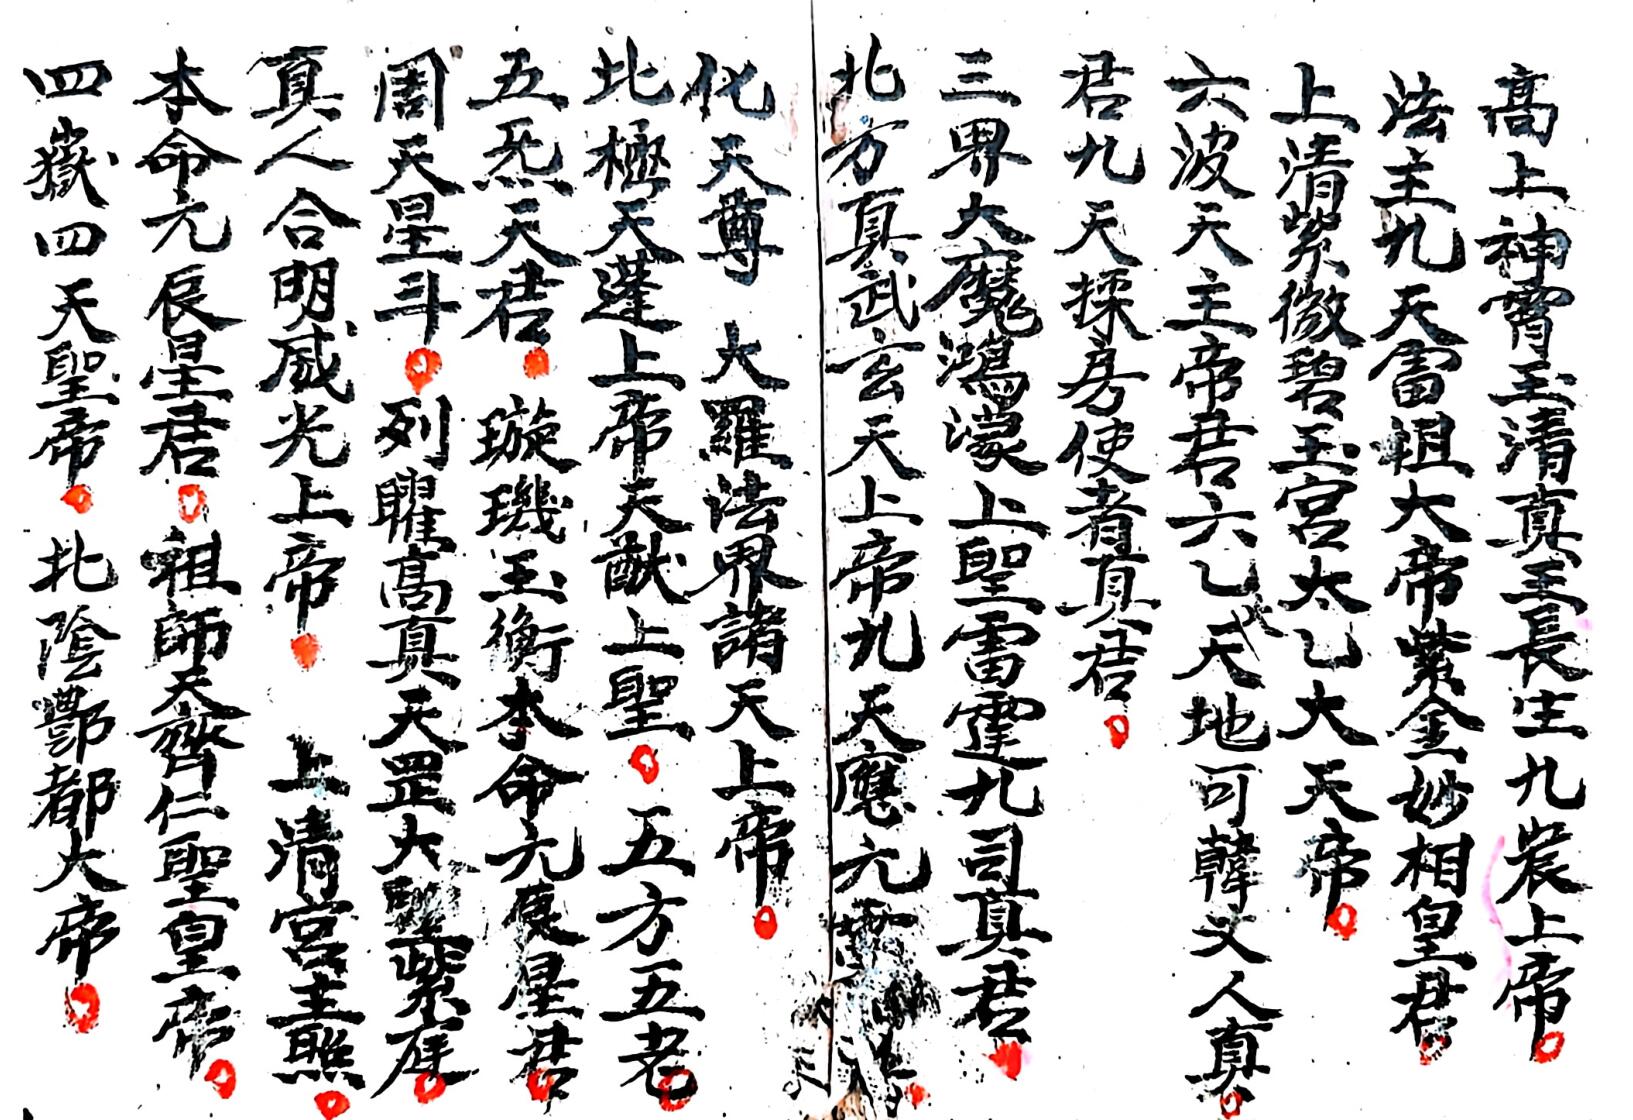 高上神霄玉清真王長生九宸上帝
法主九天雷祖大帝紫金妙相皇君
上清紫微碧玉宮太乙大天帝
六波天主帝君六乙天地可韓丈人真
君九天採房使者真君
三界大魔鴻濛上聖雷霆九司真君
北方真武玄天上帝九天應元
化天尊 大羅法界諸天上帝
北極天蓬上帝天猷上聖 五方五老
五炁天君 璇璣玉衡本命元辰星君
周天星斗 列曜高真天罡大聖紫庭
真人合明威光上帝 上清宮主照
本命元辰星君 祖師天齊仁聖皇帝
四嶽四天聖帝 北陰酆都大帝